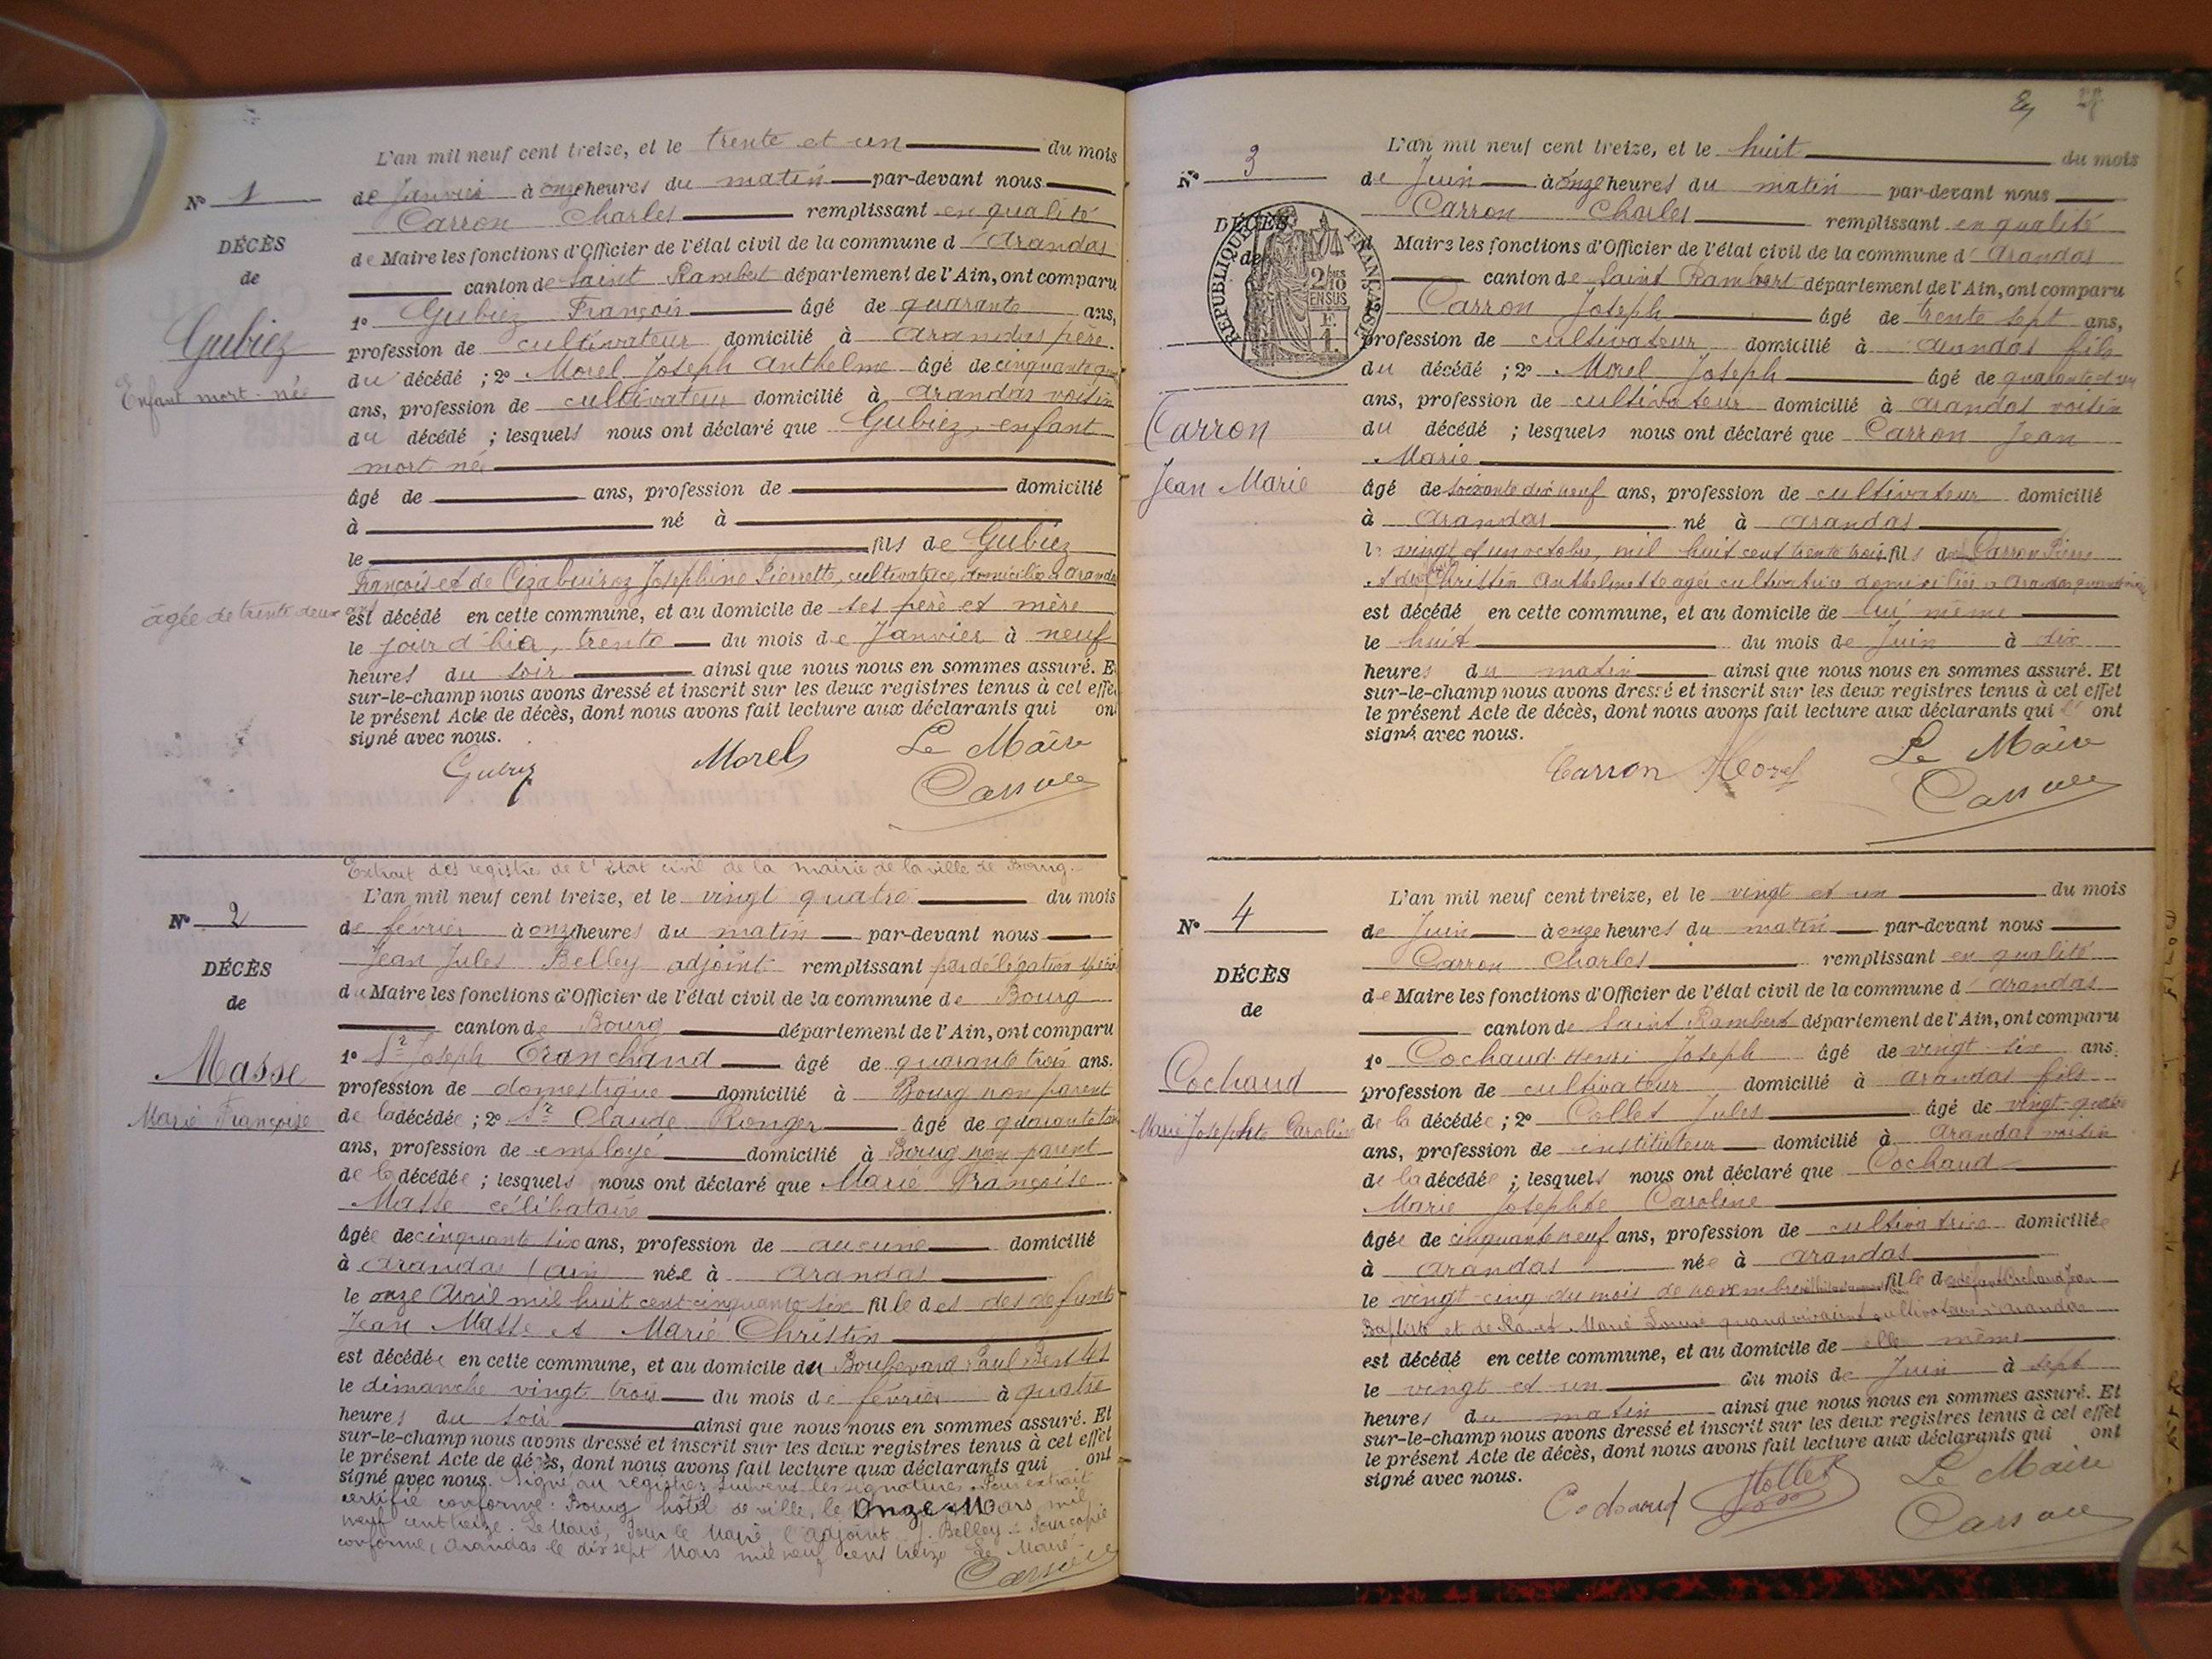 L'an mil neuf cent treize, et le trente et un du mois
Nº 1
de Janvier à onze heures du matin par-devant nous
Carron Charles remplissant en qualité
DÉCÈS
de Maire les fonctions d'Officier de l'état civil de la commune d'Arandas
de
canton de Saint Rambert département de l'Ain, ont comparu
1º Gubiez François âgé de quarante ans,
Gubiez
profession de cultivateur domicilié à Arandas père
du décédé ; 2º Morel Joseph Anthelme âgé de cinquante
Enfant mort-né
ans, profession de cultivateur domicilié à Arandas voisin
du décédé ; lesquels nous ont déclaré que Gubiez, enfant
mort né
âgé de ans, profession de domicilié
à né à
le fils de Gubiez
François et de Cizabuiroz Joséphine Pierrette, cultivatrice domiciliée à Arandas
âgée de trente deux ans
est décédé en cette commune, et au domicile de ses père et mère
le jour d'hier, trente du mois de Janvier à neuf
heures du soir ainsi que nous nous en sommes assuré. Et
sur-le-champ nous avons dressé et inscrit sur les deux registres tenus à cet effet
le présent Acte de décès, dont nous avons fait lecture aux déclarants qui ont
signé avec nous.
Gubiez Morel Le Maire
Carron
Extrait des registres de l'Etat civil de la mairie de la ville de Bourg.
L'an mil neuf cent treize, et le vingt quatre du mois
Nº 2
de février à onze heures du matin par-devant nous
Jean Jules Belley adjoint remplissant par délégation
DÉCÈS
du Maire les fonctions d'Officier de l'état civil de la commune de Bourg
de
canton de Bourg département de l'Ain, ont comparu
1º Sr Joseph Tranchand âgé de quarante trois ans.
Masse
profession de domestique domicilié à Bourg non parent
Marie Françoise
de la décédée ; 2º Sr Claude Ronger âgé de quarante
ans, profession de employé domicilié à Bourg non parent
de la décédée ; lesquels nous ont déclaré que Marie Françoise
Masse célibataire
âgée de cinquante six ans, profession de aucune domicilié
à Arandas (Ain) née à Arandas
le onze Avril mil huit cent cinquante six fille des des defunts
Jean Masse et Marie Christin
est décédée en cette commune, et au domicile du Boulevard Paul Bert
le dimanche vingt trois du mois de février à quatre
heures du soir ainsi que nous nous en sommes assuré. Et
sur-le-champ nous avons dressé et inscrit sur les deux registres tenus à cet effet
le présent Acte de décès, dont nous avons fait lecture aux déclarants qui ont
signé avec nous. Signé au registre, suivent les signatures. Pour extrait
certifié conforme: Bourg hôtel de ville, le Onze Mars mil
neuf cent treize. Le Maire, Pour le Maire, l'adjoint J. Belley. Pour copie
conforme, Arandas le dix sept Mars mil neuf cent treize Le Maire
Carron
L'an mil neuf cent treize, et le huit du mois
Nº 3
de Juin à onze heures du matin par-devant nous
Carron Charles remplissant en qualité
DÉCÈS
RÉPUBLIQUE FRANÇAISE
2/10 EN SUS
de Maire les fonctions d'Officier de l'état civil de la commune d'Arandas
de
canton de Saint Rambert département de l'Ain, ont comparu
Carron Joseph âgé de trente sept ans,
profession de cultivateur domicilié à Arandas fils
du décédé ; 2º Morel Joseph âgé de quarante et un
ans, profession de cultivateur domicilié à Arandas voisin
Carron
du décédé ; lesquels nous ont déclaré que Carron Jean
Marie
Jean Marie
âgé de soixante dix neuf ans, profession de cultivateur domicilié
à Arandas né à Arandas
le vingt et un octobre, mil huit cent trente trois fils de Carron Pierre
et de Christin Anthelmette agée cultivatrice domiciliée à Arandas
est décédé en cette commune, et au domicile de lui même
le huit du mois de Juin à dix
heures du matin ainsi que nous nous en sommes assuré. Et
sur-le-champ nous avons dressé et inscrit sur les deux registres tenus à cet effet
le présent Acte de décès, dont nous avons fait lecture aux déclarants qui ont
signé avec nous.
Carron Morel Le Maire
Carron
L'an mil neuf cent treize, et le vingt et un du mois
Nº 4
de Juin à onze heures du matin par-devant nous
Carron Charles remplissant en qualité
DÉCÈS
de Maire les fonctions d'Officier de l'état civil de la commune d'Arandas
de
canton de Saint Rambert département de l'Ain, ont comparu
1º Cochaud Henri Joseph âgé de vingt six ans.
Cochaud
profession de cultivateur domicilié à Arandas fils
Marie Josephte Caroline
de la décédée ; 2º Collet Jules âgé de vingt quatre
ans, profession de instituteur domicilié à Arandas voisin
de la décédée ; lesquels nous ont déclaré que Cochaud
Marie Josephte Caroline
âgée de cinquante neuf ans, profession de cultivatrice domiciliée
à Arandas née à Arandas
le vingt-cinq du mois de novembre fille de défunt Cochaud Jean
Baptiste et de Marie Louise quand vivaient cultivateurs à Arandas
est décédé en cette commune, et au domicile de elle même
le vingt et un du mois de Juin à sept
heures du matin ainsi que nous nous en sommes assuré. Et
sur-le-champ nous avons dressé et inscrit sur les deux registres tenus à cet effet
le présent Acte de décès, dont nous avons fait lecture aux déclarants qui ont
signé avec nous.
Cochaud Collet Le Maire
Carron